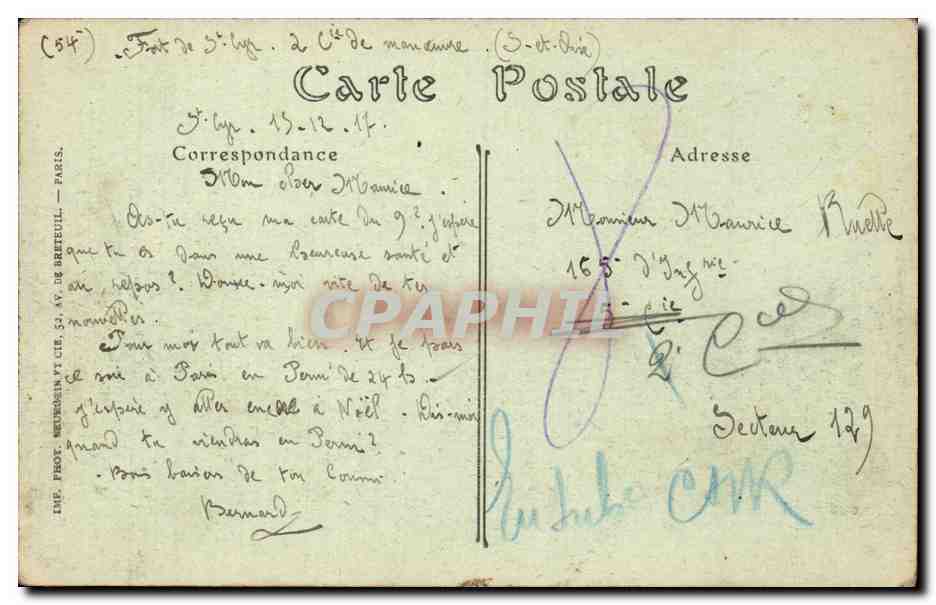 (54) Fort de St Cyr. 2 Cie de manœuvre (S-et-Oise)
Carte Postale
St Cyr. 15-12-17.
Correspondance
Mon cher Maurice.
As-tu reçu ma carte du 9? j'espère
que tu es dans une heureuse santé et
au repos? Donne-moi vite de tes
nouvelles.
Pour moi tout va bien. Et je pars
ce soir à Paris en Perm' de 24 h.
j'espère y aller encore à Noël. Dis-moi
quand tu viendras en Perm?
Bons baisers de ton Cousin
Bernard
Adresse
Monsieur Maurice Ruelle
165 d'Infrie
5 Cie
2e Cie
Secteur 129
CHR
IMP. PHOT. NEURDEIN ET CIE, 52, AV. DE BRETEUIL. — PARIS.
CPAPHIL